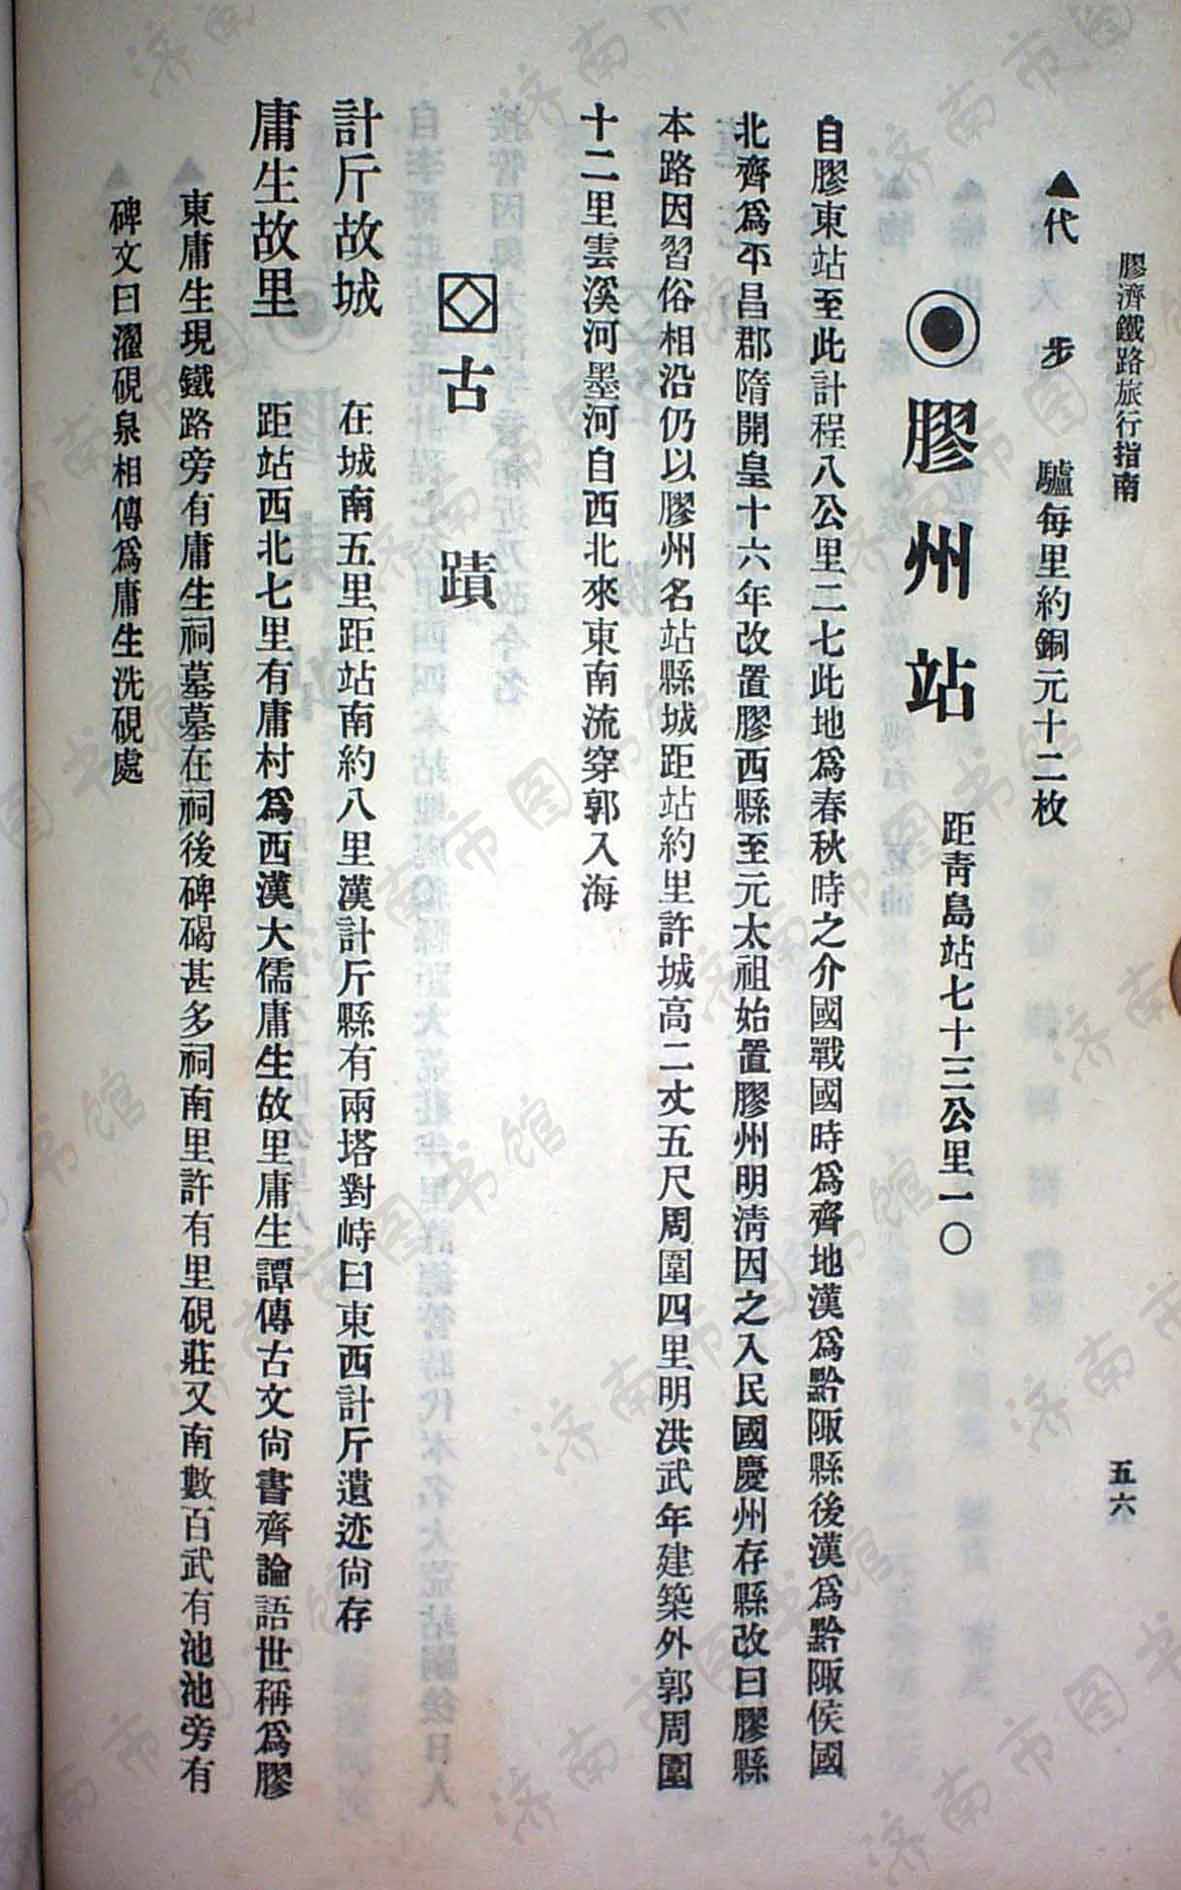 膠濟鐵路旅行指南
五六
▲代步 驢每里約銅元十二枚
◉膠州站 距靑島站七十三公里一〇
自膠東站至此計程八公里二七此地爲春秋時之介國戰國時爲齊地漢爲黔陬縣後漢爲黔陬侯國
北齊爲平昌郡隋開皇十六年改置膠西縣至元太祖始置膠州明淸因之入民國慶州存縣改曰膠縣
本路因習俗相沿仍以膠州名站縣城距站約里許城高二丈五尺周圍四里明洪武年建築外郭周圍
十二里雲溪河墨河自西北來東南流穿郭入海
古蹟
計斤故城 在城南五里距站南約八里漢計斤縣有兩塔對峙曰東西計斤遺迹尙存
庸生故里 距站西北七里有庸村爲西漢大儒庸生故里庸生譚傳古文尙書齊論語世稱爲膠
東庸生現鐵路旁有庸生祠墓墓在祠後碑碣甚多祠南里許有里硯莊又南數百武有池池旁有
碑文曰濯硯泉相傳爲庸生洗硯處
济南市图书馆